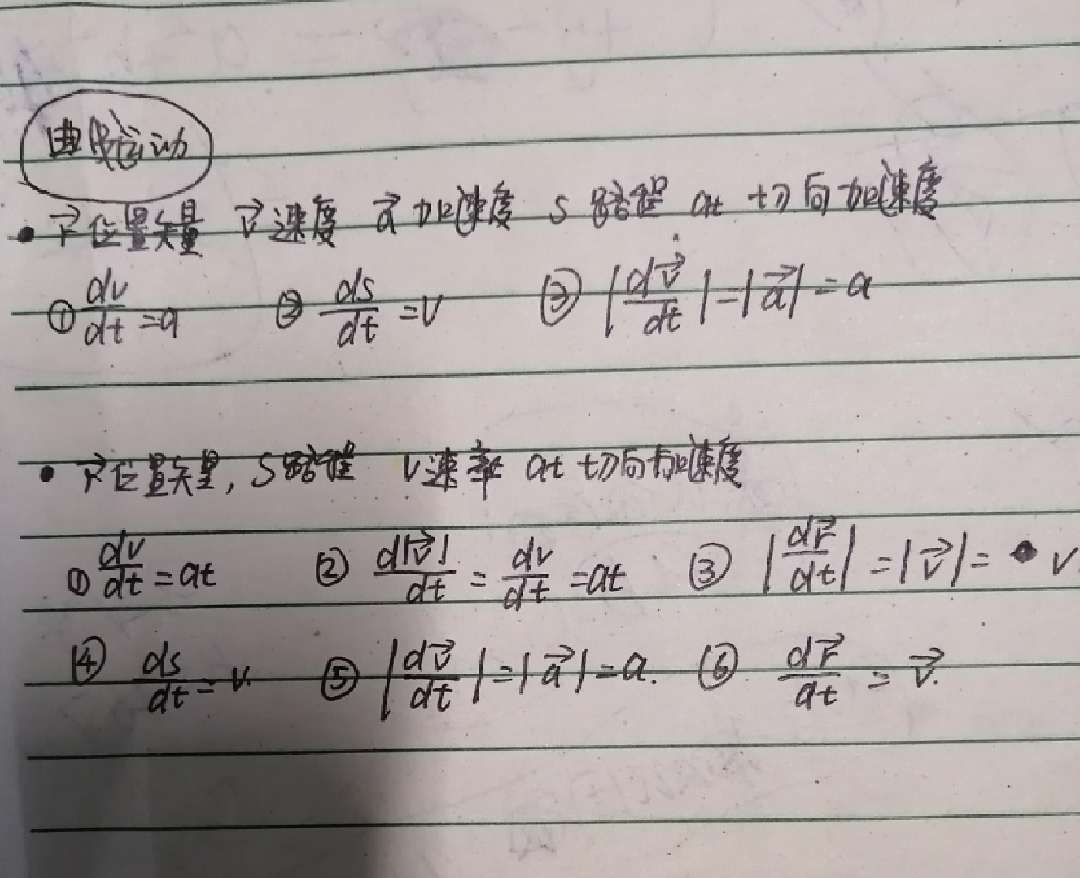 曲线运动
• r⃗位置矢量 v⃗速度 a⃗加速度 s路程 at 切向加速度
① dv/dt=a ② ds/dt=v ③ |dv⃗/dt|=|a⃗|=a
• r⃗位置矢量, S路程 v速率 at 切向加速度
① dv/dt=at ② d|v⃗|/dt=dv/dt=at ③ |dr⃗/dt|=|v⃗|=v
④ ds/dt=v. ⑤ |dv⃗/dt|=|a⃗|=a. ⑥ dr⃗/dt=v⃗.